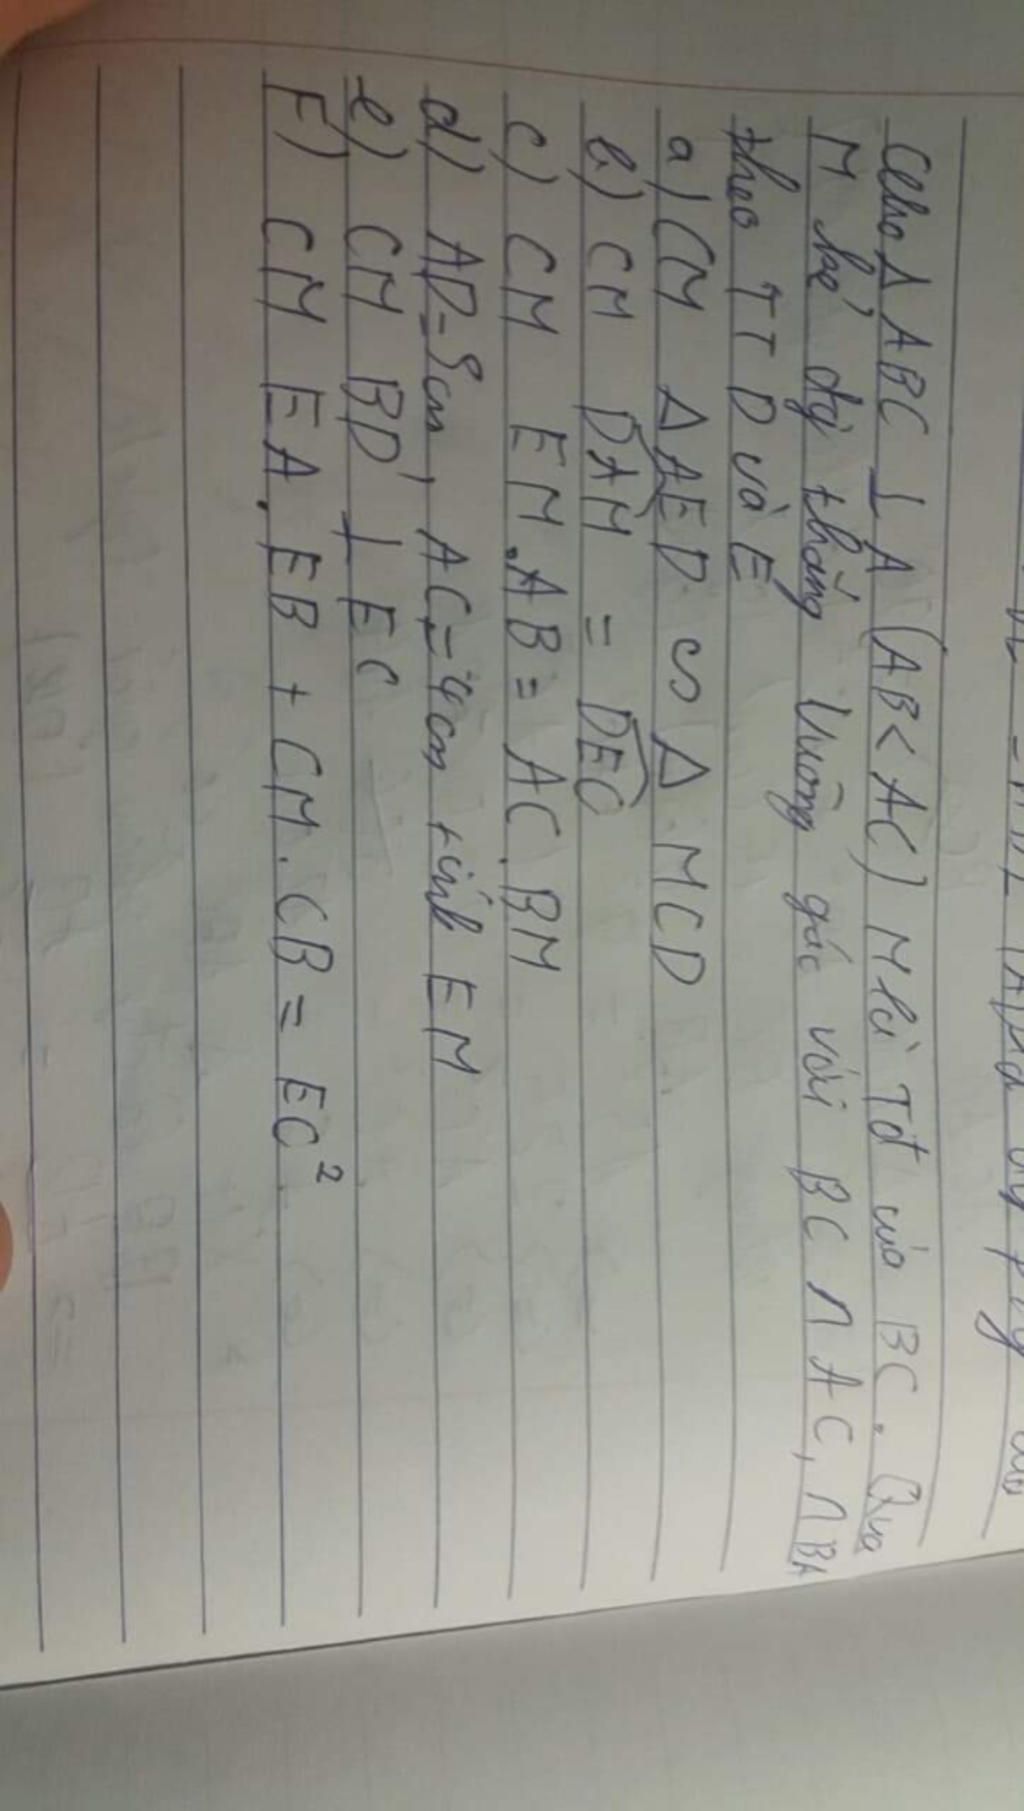 Cho Δ ABC ⊥ A (AB < AC) M là Tđ của BC. Qua
M kẻ đg thẳng Vuông góc với BC ∩ AC, ∩ BA
theo TT D và E
a) CM Δ AED ∽ Δ MCD
b) CM DAM = DEC
c) CM EM.AB = AC.BM
d) AD=3cm, AC=4cm tính EM
e) CM BD ⊥ EC
F) CM EA.EB + CM.CB = EC²